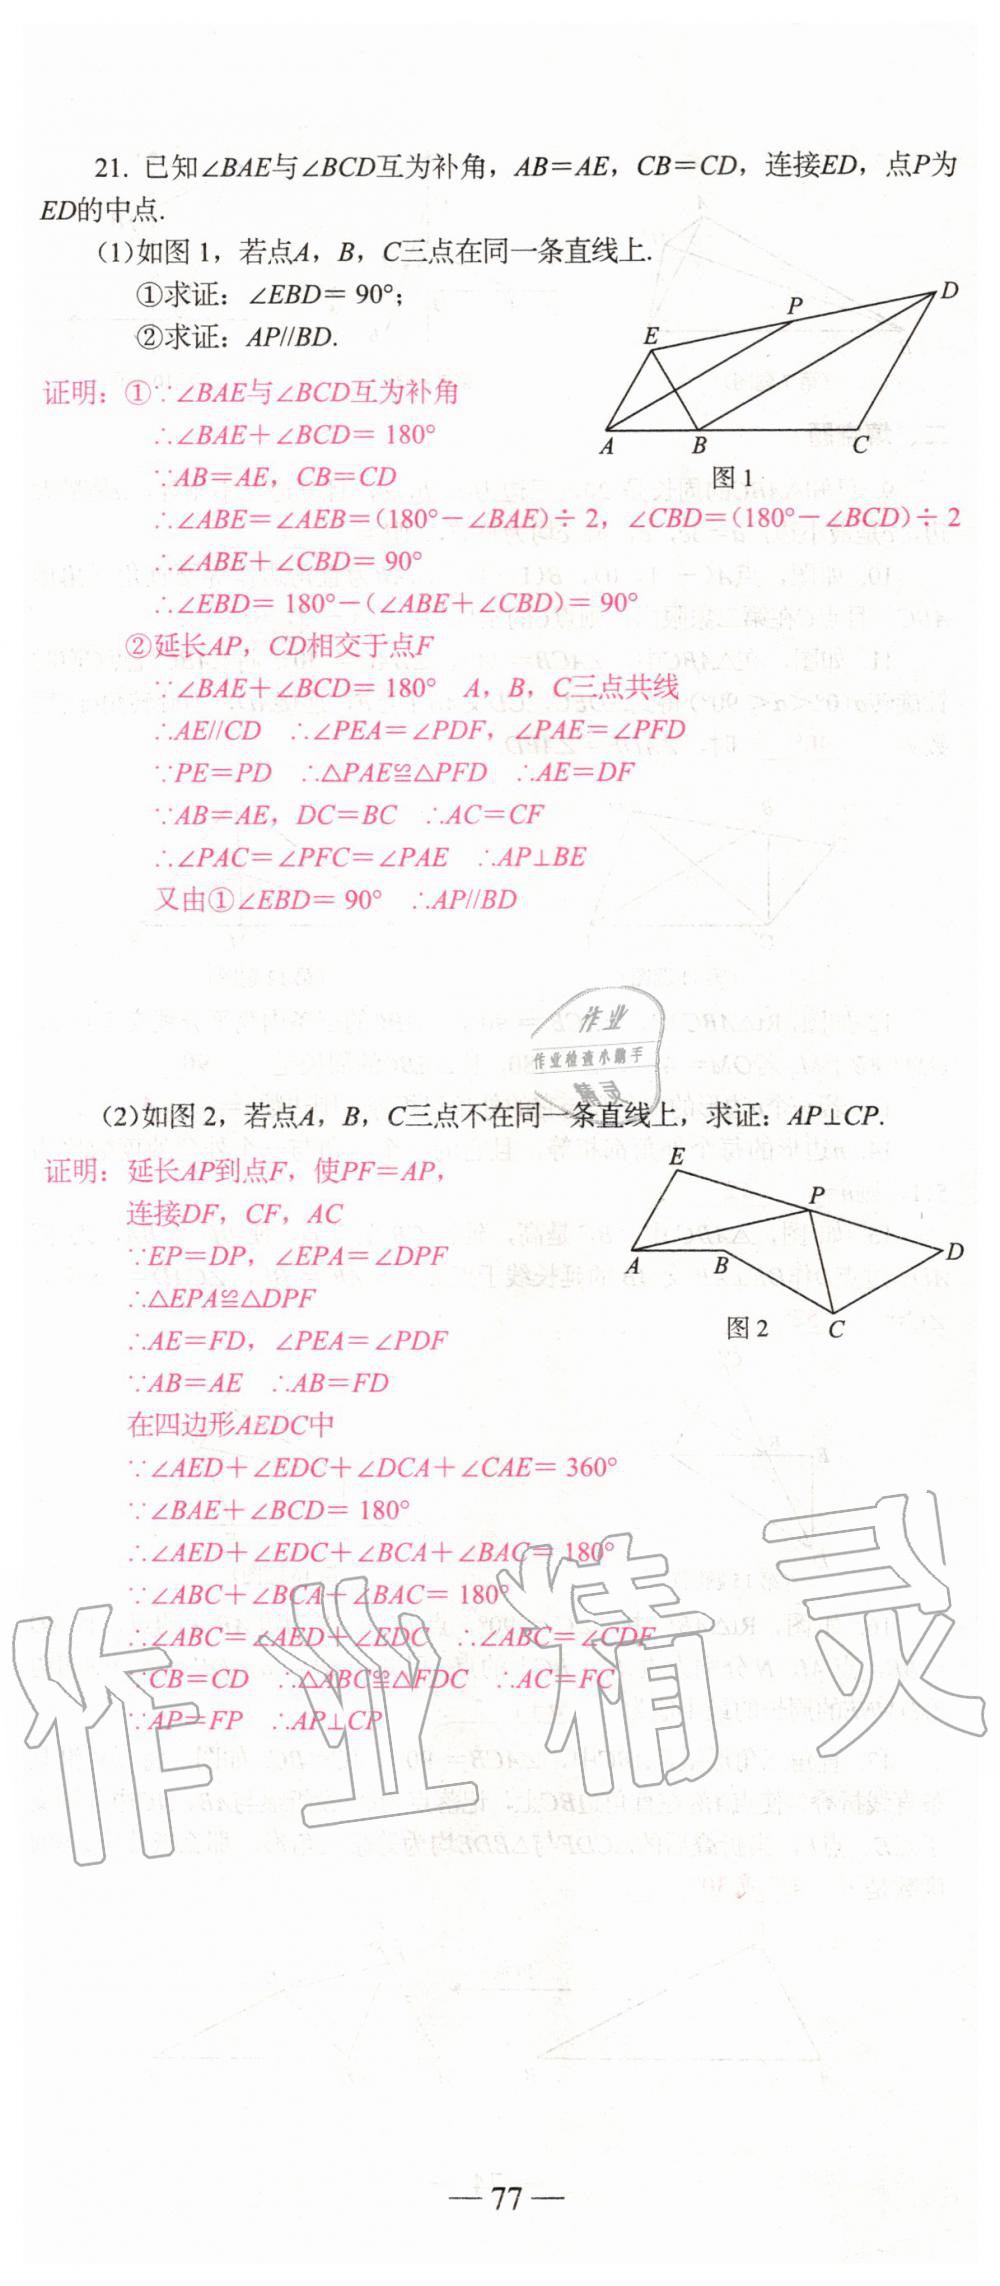 21. 已知∠BAE与∠BCD互为补角，AB=AE，CB=CD，连接ED，点P为
ED的中点.
(1)如图 1，若点A，B，C三点在同一条直线上.
①求证：∠EBD= 90°；
②求证：AP//BD.
E
P
D
A
B
C
图 1
证明：①∵∠BAE与∠BCD互为补角
∴∠BAE+∠BCD= 180°
∵AB=AE，CB=CD
∴∠ABE=∠AEB=(180°-∠BAE)÷2，∠CBD=(180°-∠BCD)÷2
∴∠ABE+∠CBD= 90°
∴∠EBD= 180°-(∠ABE+∠CBD)= 90°
②延长AP，CD相交于点F
∵∠BAE+∠BCD= 180° A，B，C三点共线
∴AE//CD ∴∠PEA=∠PDF，∠PAE=∠PFD
∵PE=PD ∴△PAE≌△PFD ∴AE=DF
∵AB=AE，DC=BC ∴AC=CF
∴∠PAC=∠PFC=∠PAE ∴AP⊥BE
又由①∠EBD= 90° ∴AP//BD
作业
作业检查小助手
精灵
(2)如图 2，若点A，B，C三点不在同一条直线上，求证：AP⊥CP.
E
P
A
B
D
图 2
C
证明：延长AP到点F，使PF=AP，
连接DF，CF，AC
∵EP=DP，∠EPA=∠DPF
∴△EPA≌△DPF
∴AE=FD，∠PEA=∠PDF
∵AB=AE ∴AB=FD
在四边形AEDC中
∵∠AED+∠EDC+∠DCA+∠CAE= 360°
∵∠BAE+∠BCD= 180°
∴∠AED+∠EDC+∠BCA+∠BAC= 180°
∵∠ABC+∠BCA+∠BAC= 180°
∴∠ABC=∠AED+∠EDC ∴∠ABC=∠CDF
∵CB=CD ∴△ABC≌△FDC ∴AC=FC
∵AP=FP ∴AP⊥CP
作业精灵
— 77 —